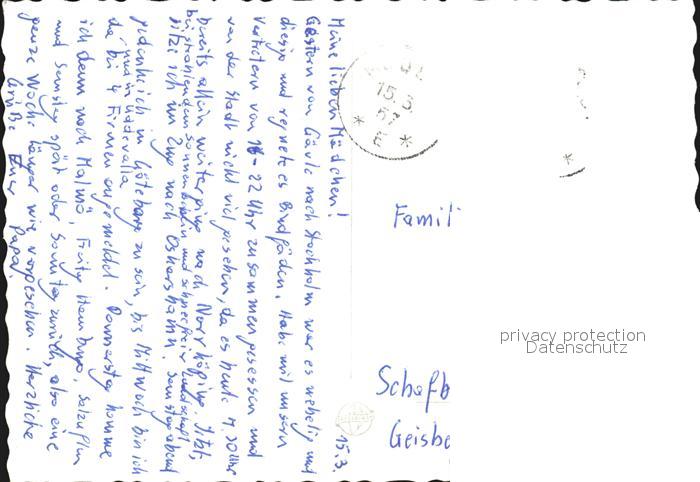 15.3.
Meine lieben Mädchen!
Gestern von Gävle nach Stockholm war es nebelig und
diesig und regnete es Bindfäden. Hab mit unsern
Vertretern von 18-22 Uhr zusammen gesessen und
von der Stadt nicht viel gesehen, da es heute 7,20 Uhr
bereits allein weiterging nach Norrköping. Jetzt,
bei strahlendem Sonnenschein und schneefreier Landschaft
sitze ich im Zug nach Oskarshamn. Samstag abend
gedenke ich in Göteborg zu sein, bis Mittwoch bin ich
und in Uddevalla
da bei 4 Firmen angemeldet. Donnerstag komme
ich dann nach Malmö, Freitag Hamburg, Salzuflen
und Samstag spät oder Sonntag zurück, also eine
ganze Woche länger wie vorgesehen. Herzliche
Grüße Euer Papa.
15.3.
57
* E *
*
Famili
Schafb
Geisbe
privacy protection
Datenschutz